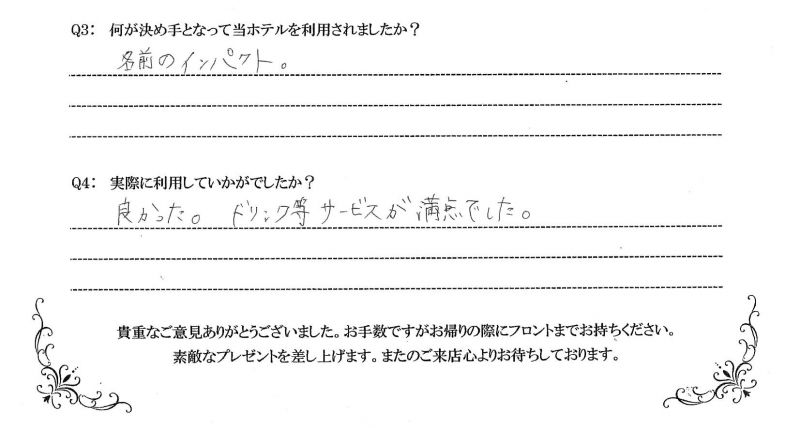 Q3: 何が決め手となって当ホテルを利用されましたか？
名前のインパクト。
Q4: 実際に利用していかがでしたか？
良かった。 ドリンク等サービスが満点でした。
貴重なご意見ありがとうございました。お手数ですがお帰りの際にフロントまでお持ちください。
素敵なプレゼントを差し上げます。またのご来店心よりお待ちしております。